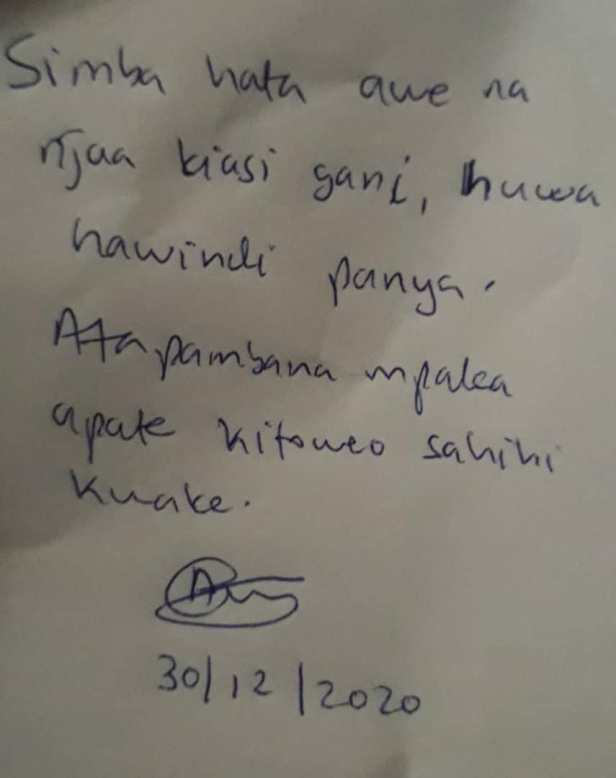 Simba hata awe na
njaa kiasi gani, huwa
hawindi panya.
Atapambana mpaka
apate kitoweo sahihi
kwake.
30/12/2020